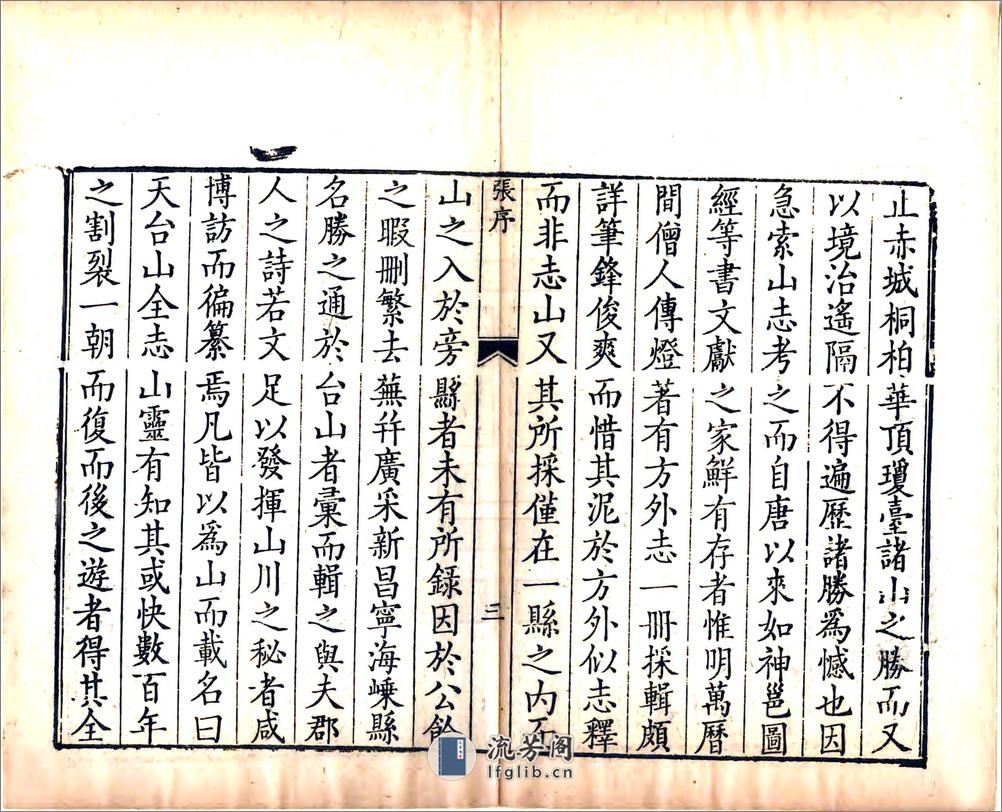 止赤城桐柏華頂瓊臺諸山之勝而又
以境治遙隔不得遍歷諸勝為憾也因
急索山志考之而自唐以來如神邕圖
經等書文獻之家鮮有存者惟明萬曆
間僧人傳燈著有方外志一冊採輯頗
詳筆鋒俊爽而惜其泥於方外似志釋
而非志山又其所採僅在一縣之內而
張序
三
山之入於旁縣者未有所録因於公餘
之暇刪繁去蕪幷廣采新昌寧海嵊縣
名勝之通於台山者彙而輯之與夫郡
人之詩若文足以發揮山川之秘者咸
博訪而徧纂焉凡皆以爲山而載名曰
天台山全志山靈有知其或快數百年
之割裂一朝而復而後之遊者得其全
流芳阁
lfglib.cn